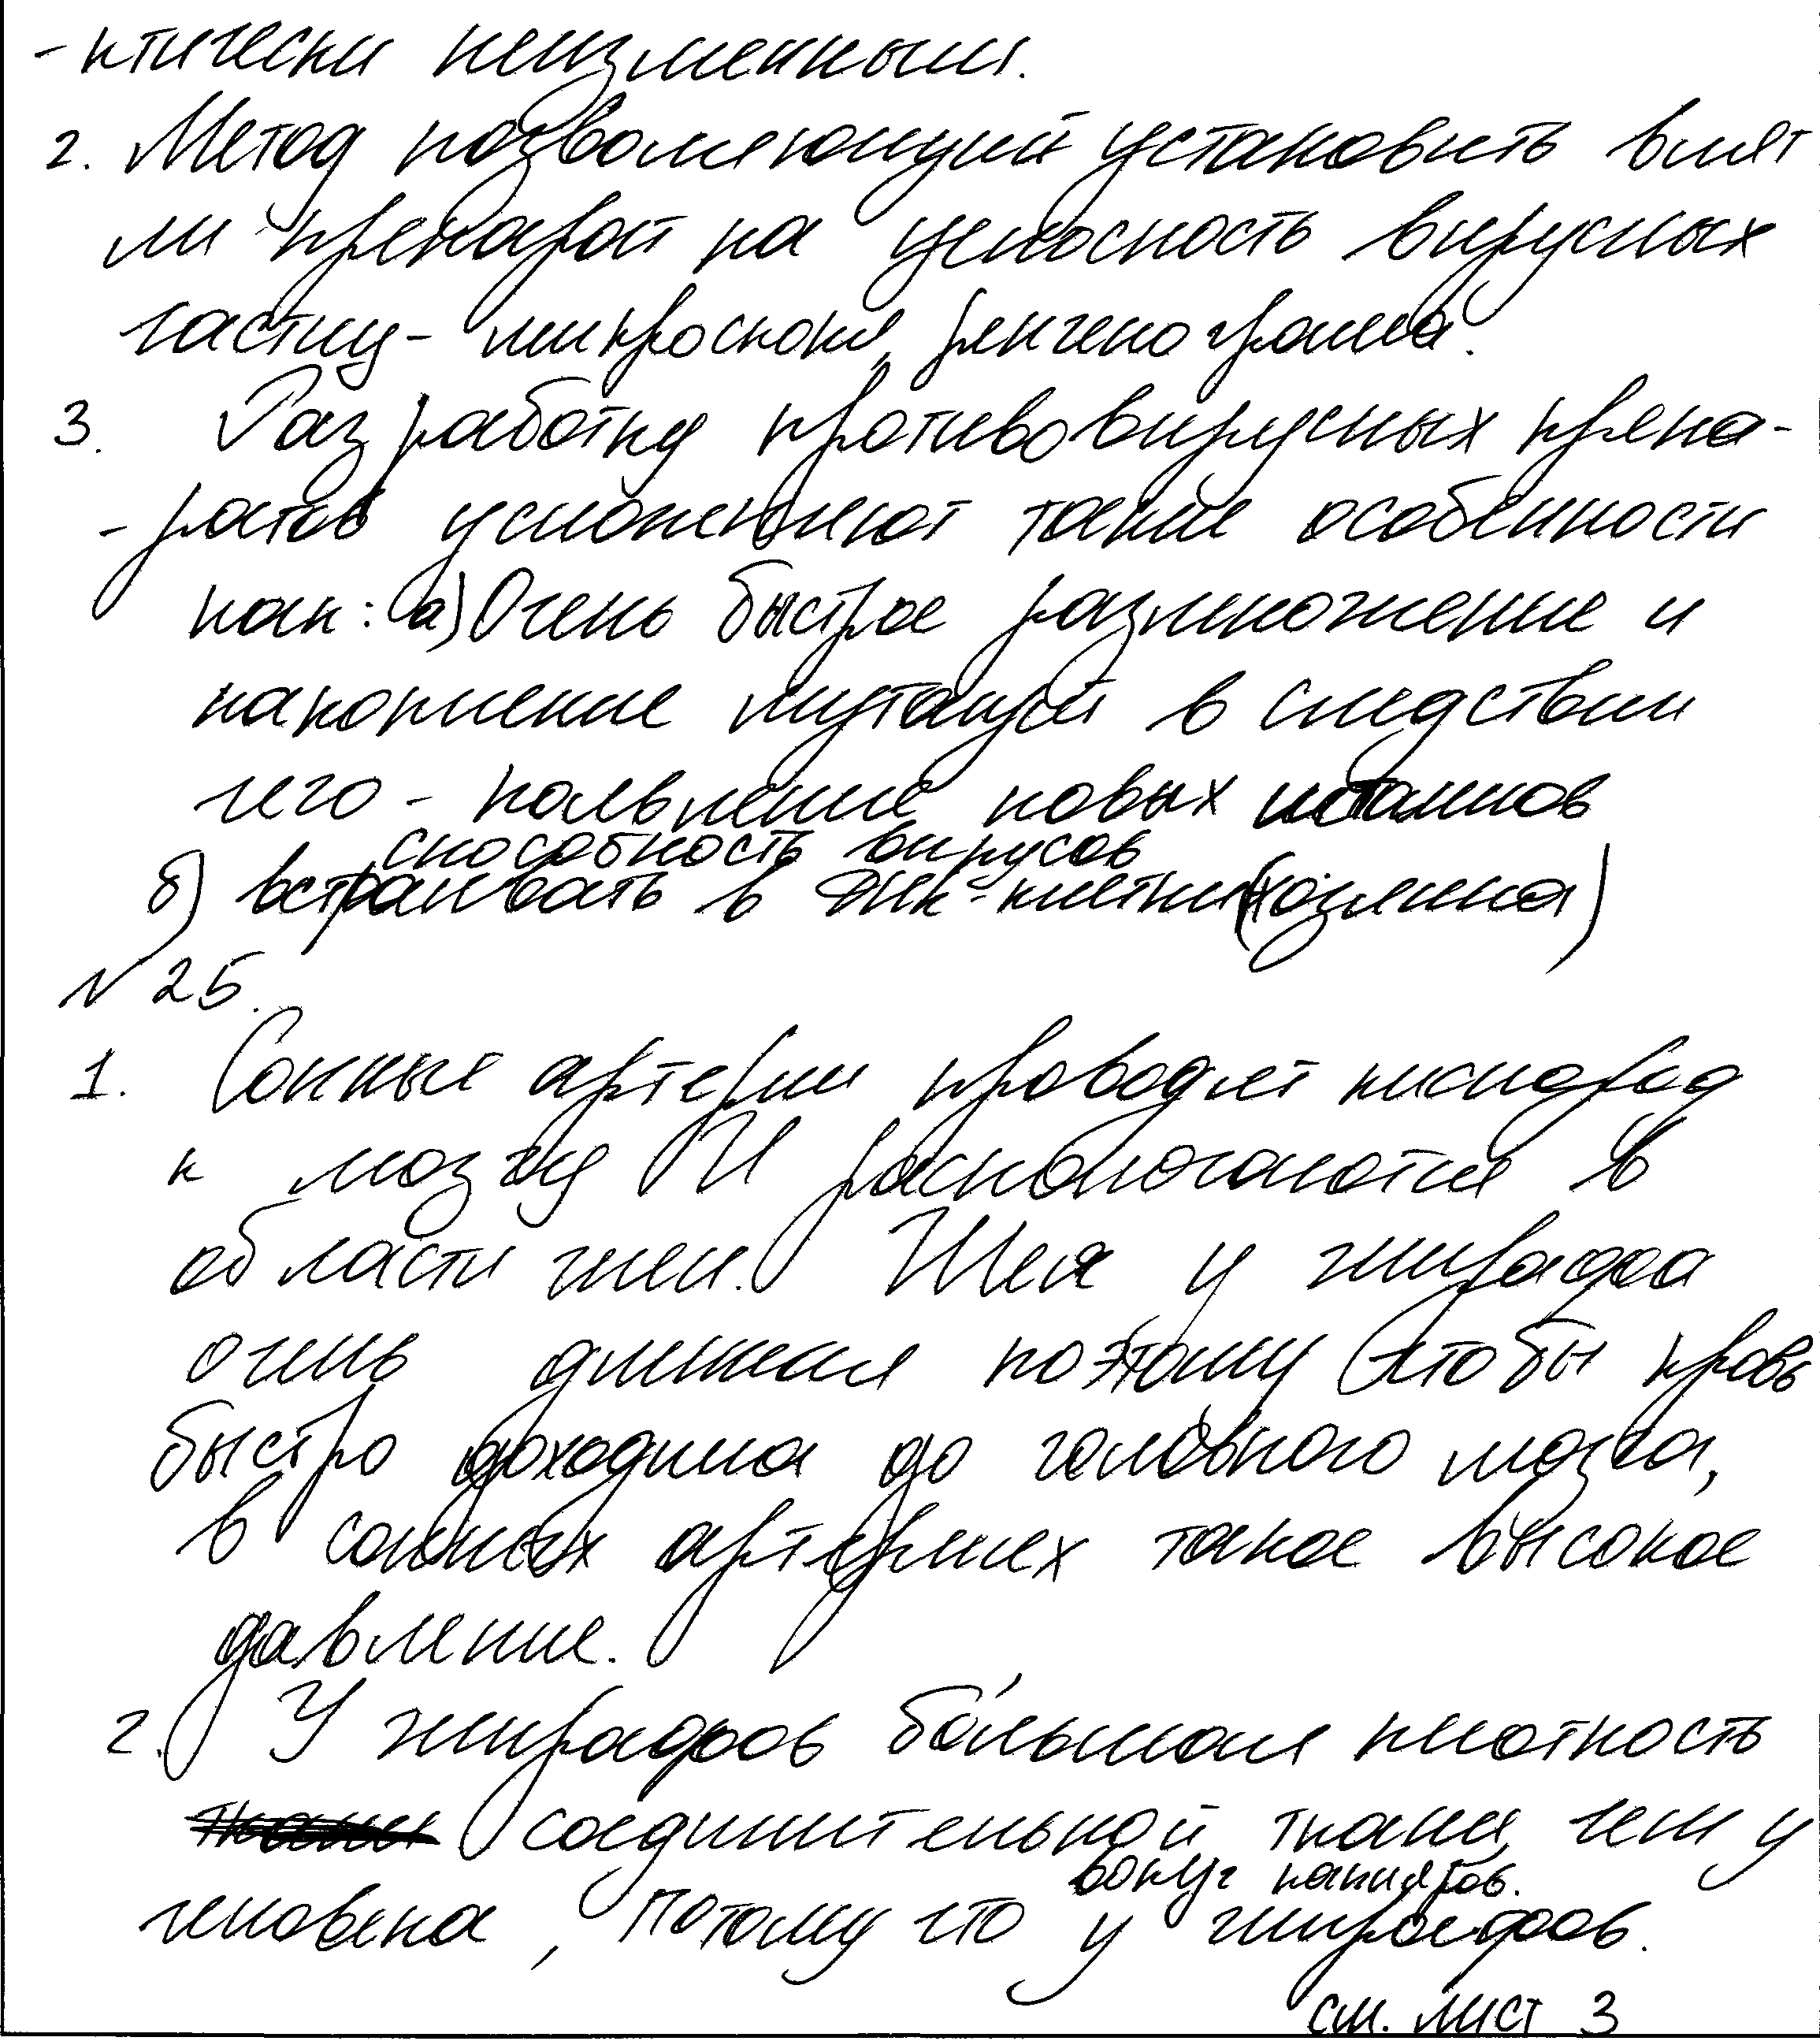 -ктически неизменным.
2. Метод позволяющий установить влият
ли препарат на целосность вирусных
частиц - микроскопия, ренгенограмма.
3. Разработку противовирусных препа-
-ратов усложняют такие особенности
как: а) Очень быстрое размножение и
накопление мутаций в следствии
чего - появление новых штаммов
способность вирусов
б) встраивать в ДНК-клетки (хозяина)
№ 25.
1. Сонные артерии проводят кислород
к мозгу И распологаются в
области шеи. Шея у жирафа
очень длинная поэтому чтобы кровь
быстро доходила до головного мозга,
в сонных артериях такое высокое
давление.
2. У жирафов бо́льшая плотность
соединительной ткани, чем у
вокуг капиляров.
человека, потому что у жирафов.
см. лист 3